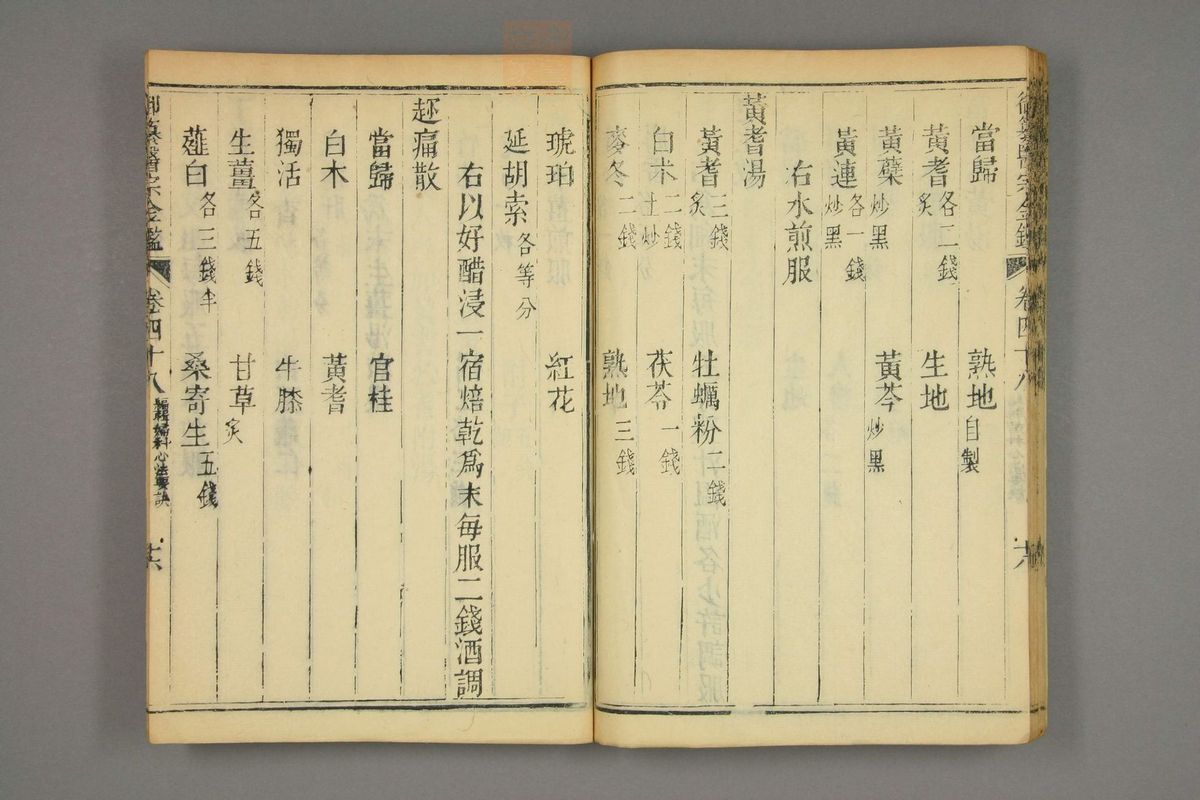 當歸 熟地自製
黃耆炙各二錢 生地
黃蘗炒黑 黃芩炒黑
黃連炒黑各一錢
右水煎服
黃耆湯
黃耆炙三錢 牡蠣粉二錢
白朮土炒二錢 茯苓一錢
麥冬二錢 熟地三錢
琥珀 紅花
延胡索各等分
右以好醋浸一宿焙乾為末每服二錢酒調
趂痛散
當歸 官桂
白木 黃耆
獨活 牛膝
生薑各五錢 甘草炙
薤白各三錢半 桑寄生五錢
御纂醫宗金鑑 卷四十八 編輯婦科心法要訣